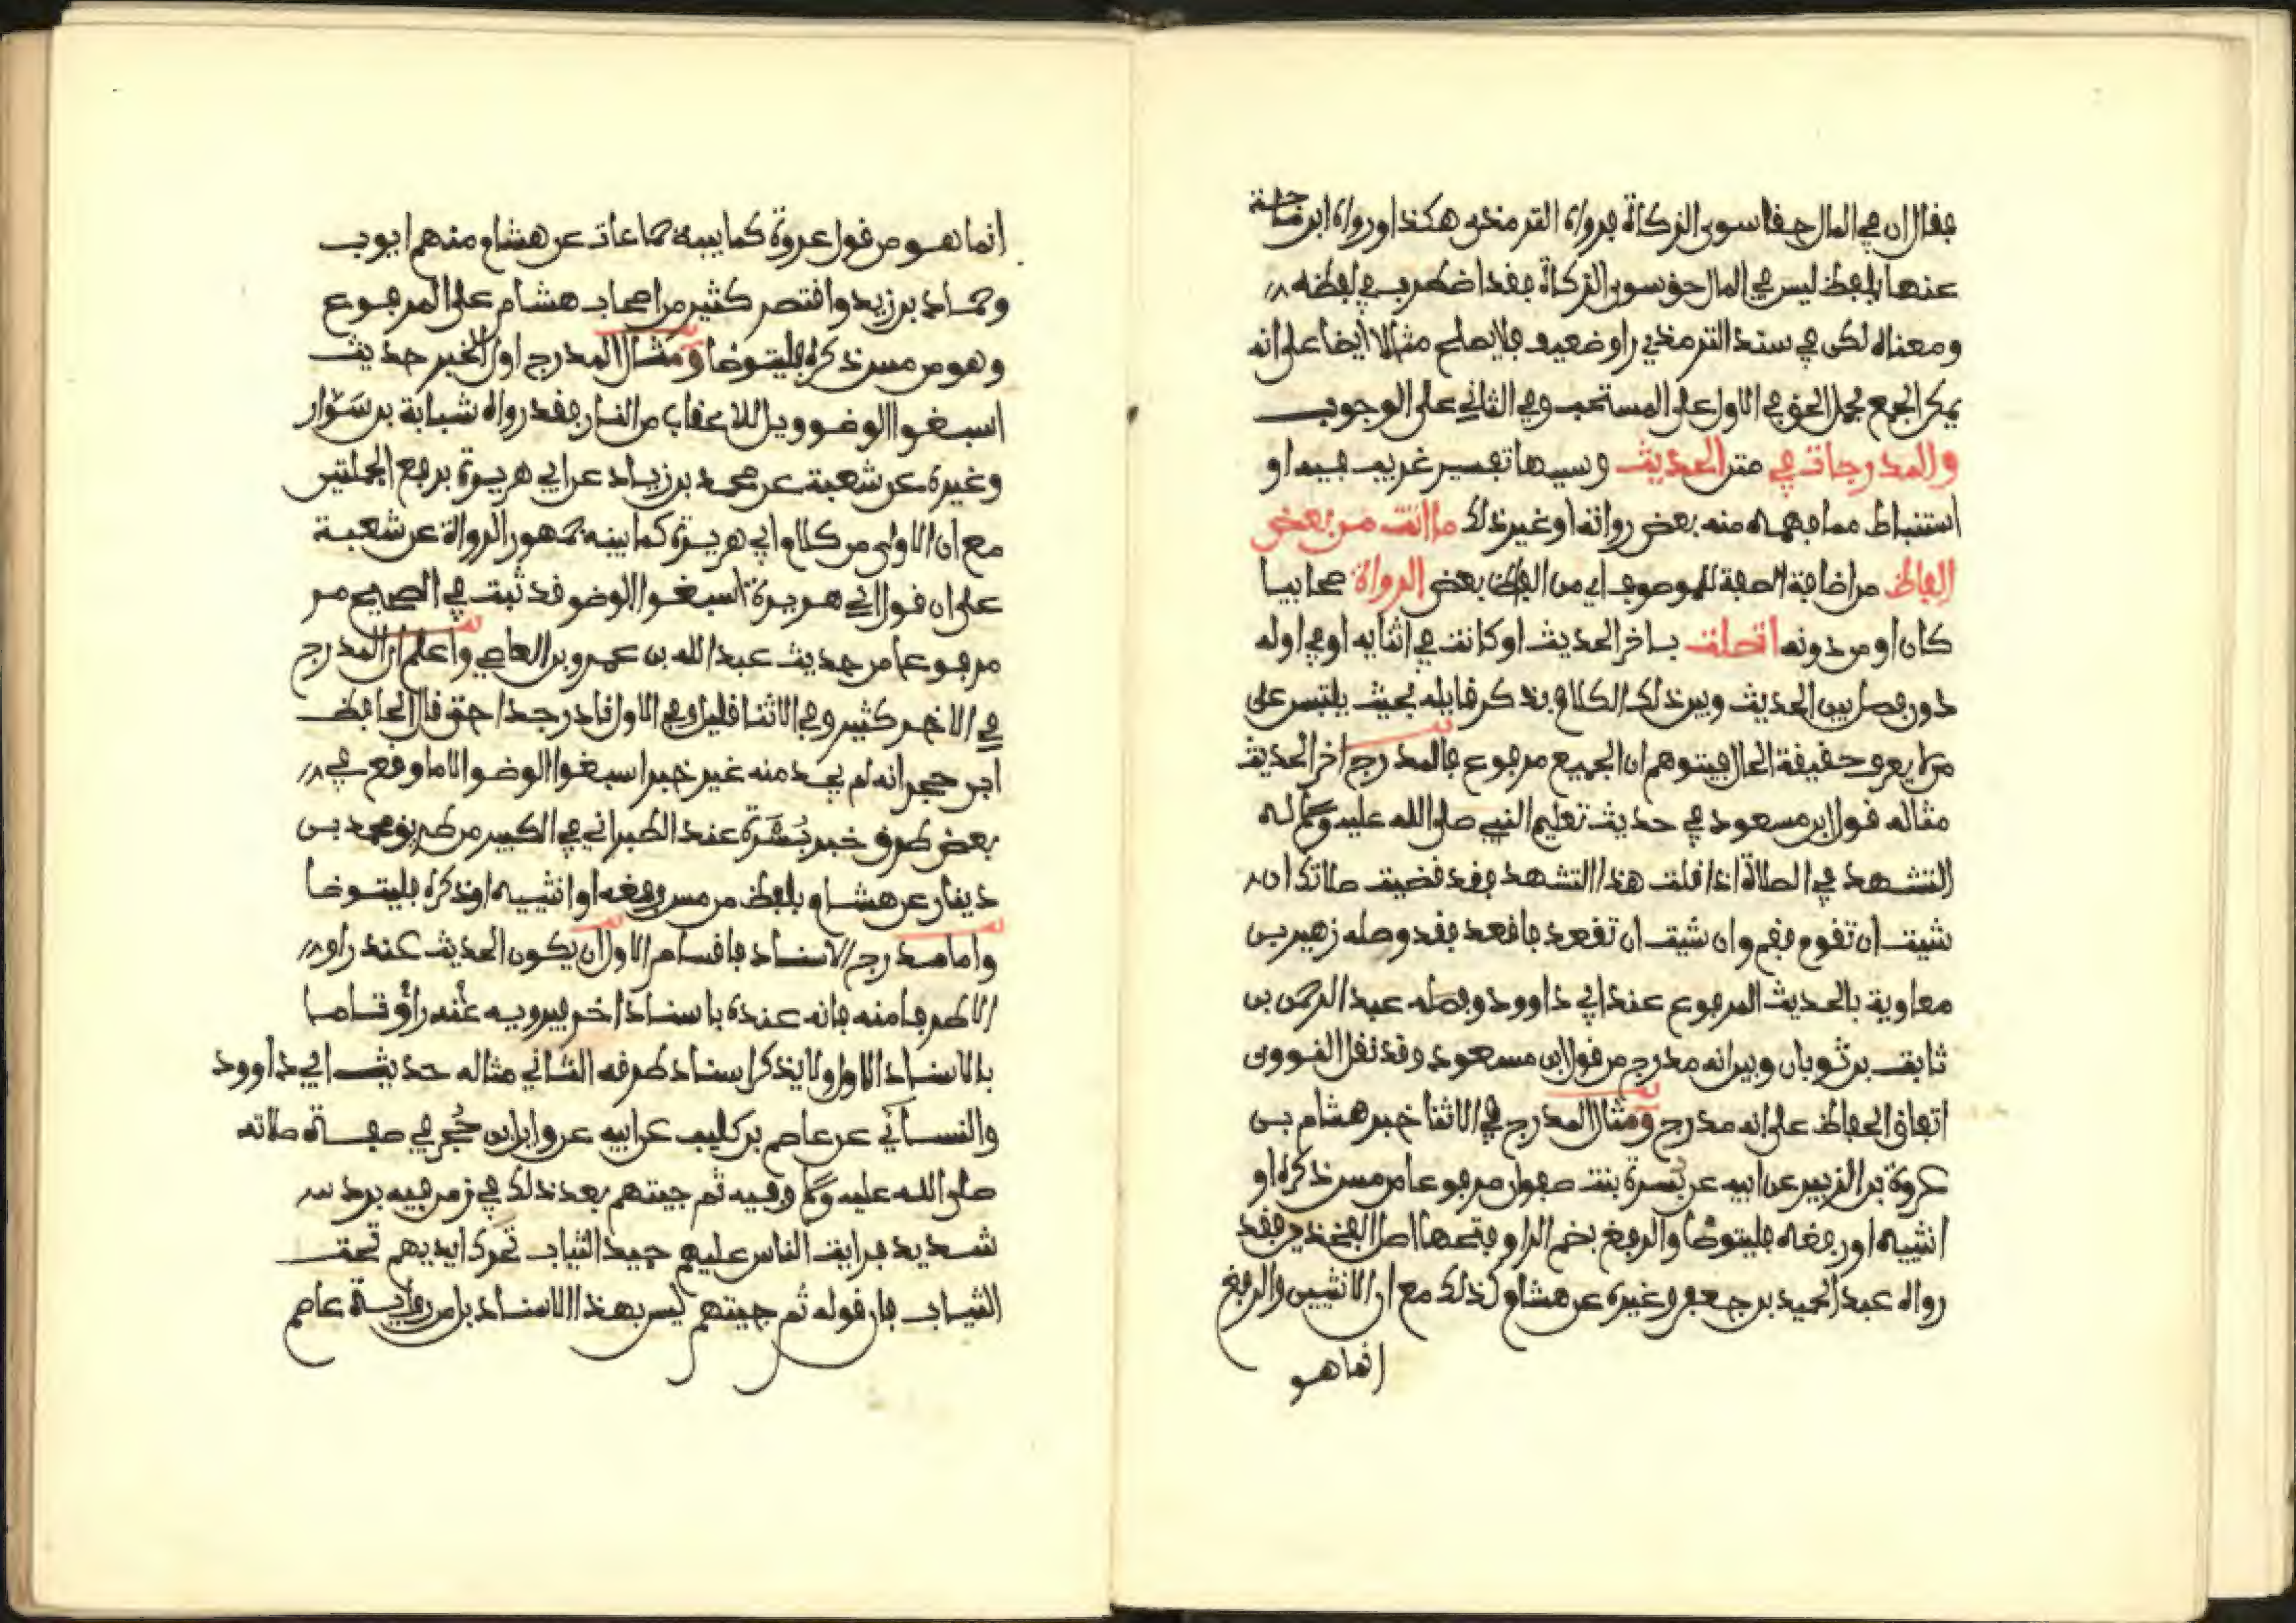 فقال ان في المال حقا سوى الزكاة فرواه الترمذي هكذا ورواه ابن ماجة
عنها بلفظ ليس في المال حق سوى الزكاة فقد اضطرب في لفظه
ومعناه لكن في سند الترمذي راو ضعيف فلا يصلح مثالا ايضا على انه
يمكن الجمع بحمل الحق في الاول على المستحب وفي الثاني على الوجوب
والمدرجات في متن الحديث وسببها تفسير غريب فيه او
استنباط مما فهمه منه بعض رواته او غير ذلك ما اتت من بعض
الفاظ من اضافة الصفة للموصوف اي من الفاظ بعض الرواة صحابيا
كان او من دونه اتصلت باخر الحديث او كانت في اثنايه او في اوله
دون فصل بين الحديث وبين ذلك الكلام بذكر قايله بحيث يلتبس على
من لا يعرف حقيقة الحال فيتوهم ان الجميع مرفوع فالمدرج اخر الحديث
مثاله قول ابن مسعود في حديث تعليم النبي صلى الله عليه وسلم له
التشهد في الصلاة اذا قلت هذا التشهد فقد قضيت صلاتك ان
شيت ان تقوم فقم وان شيت ان تقعد فاقعد فقد وصله زهير بن
معاوية بالحديث المرفوع عند ابي داوود وفصله عبد الرحمن بن
ثابت بن ثوبان وبين انه مدرج من قول ابن مسعود وقد نقل النووي
اتفاق الحفاظ على انه مدرج ومثال المدرج في الاثنا خبر هشام بن
عروة بن الزبير عن ابيه عن بُسرة بنت صفوان مرفوعا من مس ذكره او
انثييه او رفغه فليتوضأ والرفغ بضم الراء وفتحها اصل الفخذين فقد
رواه عبد الحميد بن جعفر وغيره عن هشام كذلك مع ان الانثيين والرفغ
انما هو
انما هو من قول عروة كما بينه جماعات عن هشام منهم ايوب
وحماد بن زيد واقتصر كثير من اصحاب هشام على المرفوع
وهو من مس ذكره فليتوضا ومثال المدرج اول الخبر حديث
اسبغوا الوضو ويل للاعقاب من النار فقد رواه شبابة بن سَوَّار
وغيره عن شعبة عن محمد بن زياد عن ابي هريرة برفع الجملتين
مع ان الاولى من كلام ابي هريرة كما بينه جمهور الرواة عن شعبة
على ان قول ابي هريرة اسبغوا الوضو قد ثبت في الصحيح مر
مرفوعا من حديث عبد الله بن عمرو بن العاصي واعلم ان المدرج
في الاخر كثير وفي الاثنا قليل وفي الاول نادر جدا حتى قال الحافظ
ابن حجر انه لم يجد منه غير خبر اسبغوا الوضو الا ما وقع في
بعض طرق خبر بُسْرَة عند الطبراني في الكبير من طريق محمد بن
دينار عن هشام بلفظ من مس رفغه او انثييه او ذكره فليتوضا
واما مدرج الاسناد فاقسام الاول ان يكون الحديث عند راو
الا طرفا منه فانه عنده باسناد اخر فيرويه عنه راو تاما
بالاسناد الاول ولا يذكر اسناد طرفه الثاني مثاله حديث ابي داوود
والنسائي عن عاصم بن كليب عن ابيه عن وايل بن حُجر في صفة صلاته
صلى الله عليه وسلم وفيه ثم جيتهم بعد ذلك في زمن فيه برد
شديد فرايت الناس عليهم جيد الثياب تحرك ايديهم تحت
الثياب فان قوله ثم جيتهم ليس بهذا الاسناد بل من رواية عاصم